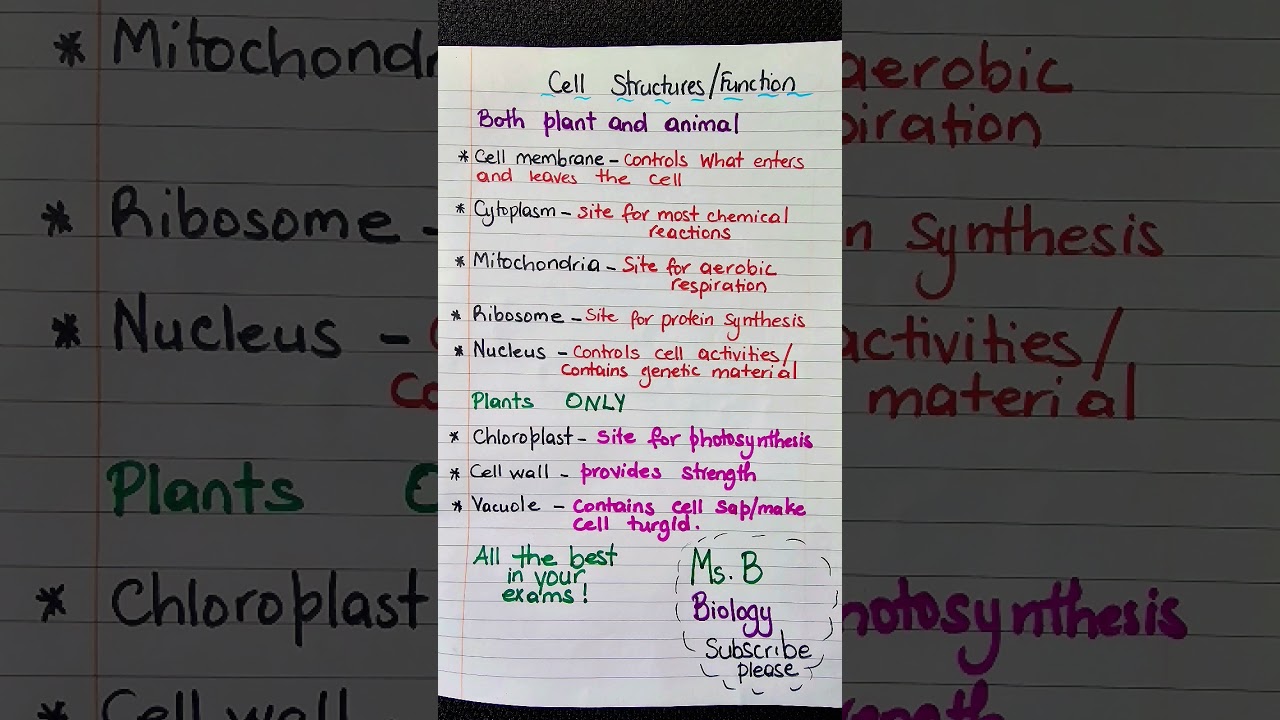 Cell Structures/Function
Both plant and animal
* Cell membrane - controls what enters
and leaves the cell
* Cytoplasm - site for most chemical
reactions
* Mitochondria - Site for aerobic
respiration
* Ribosome - Site for protein synthesis
* Nucleus - Controls cell activities/
contains genetic material
Plants ONLY
* Chloroplast - Site for photosynthesis
* Cell wall - provides strength
* Vacuole - Contains cell sap/make
cell turgid.
All the best
in your
exams!
Ms. B
Biology
Subscribe
please
* Mitochondr
* Ribosome -
* Nucleus -
Plants
* Chloroplast
* Cell wall
aerobic
piration
n synthesis
activities/
material
hotosynthesis
rength